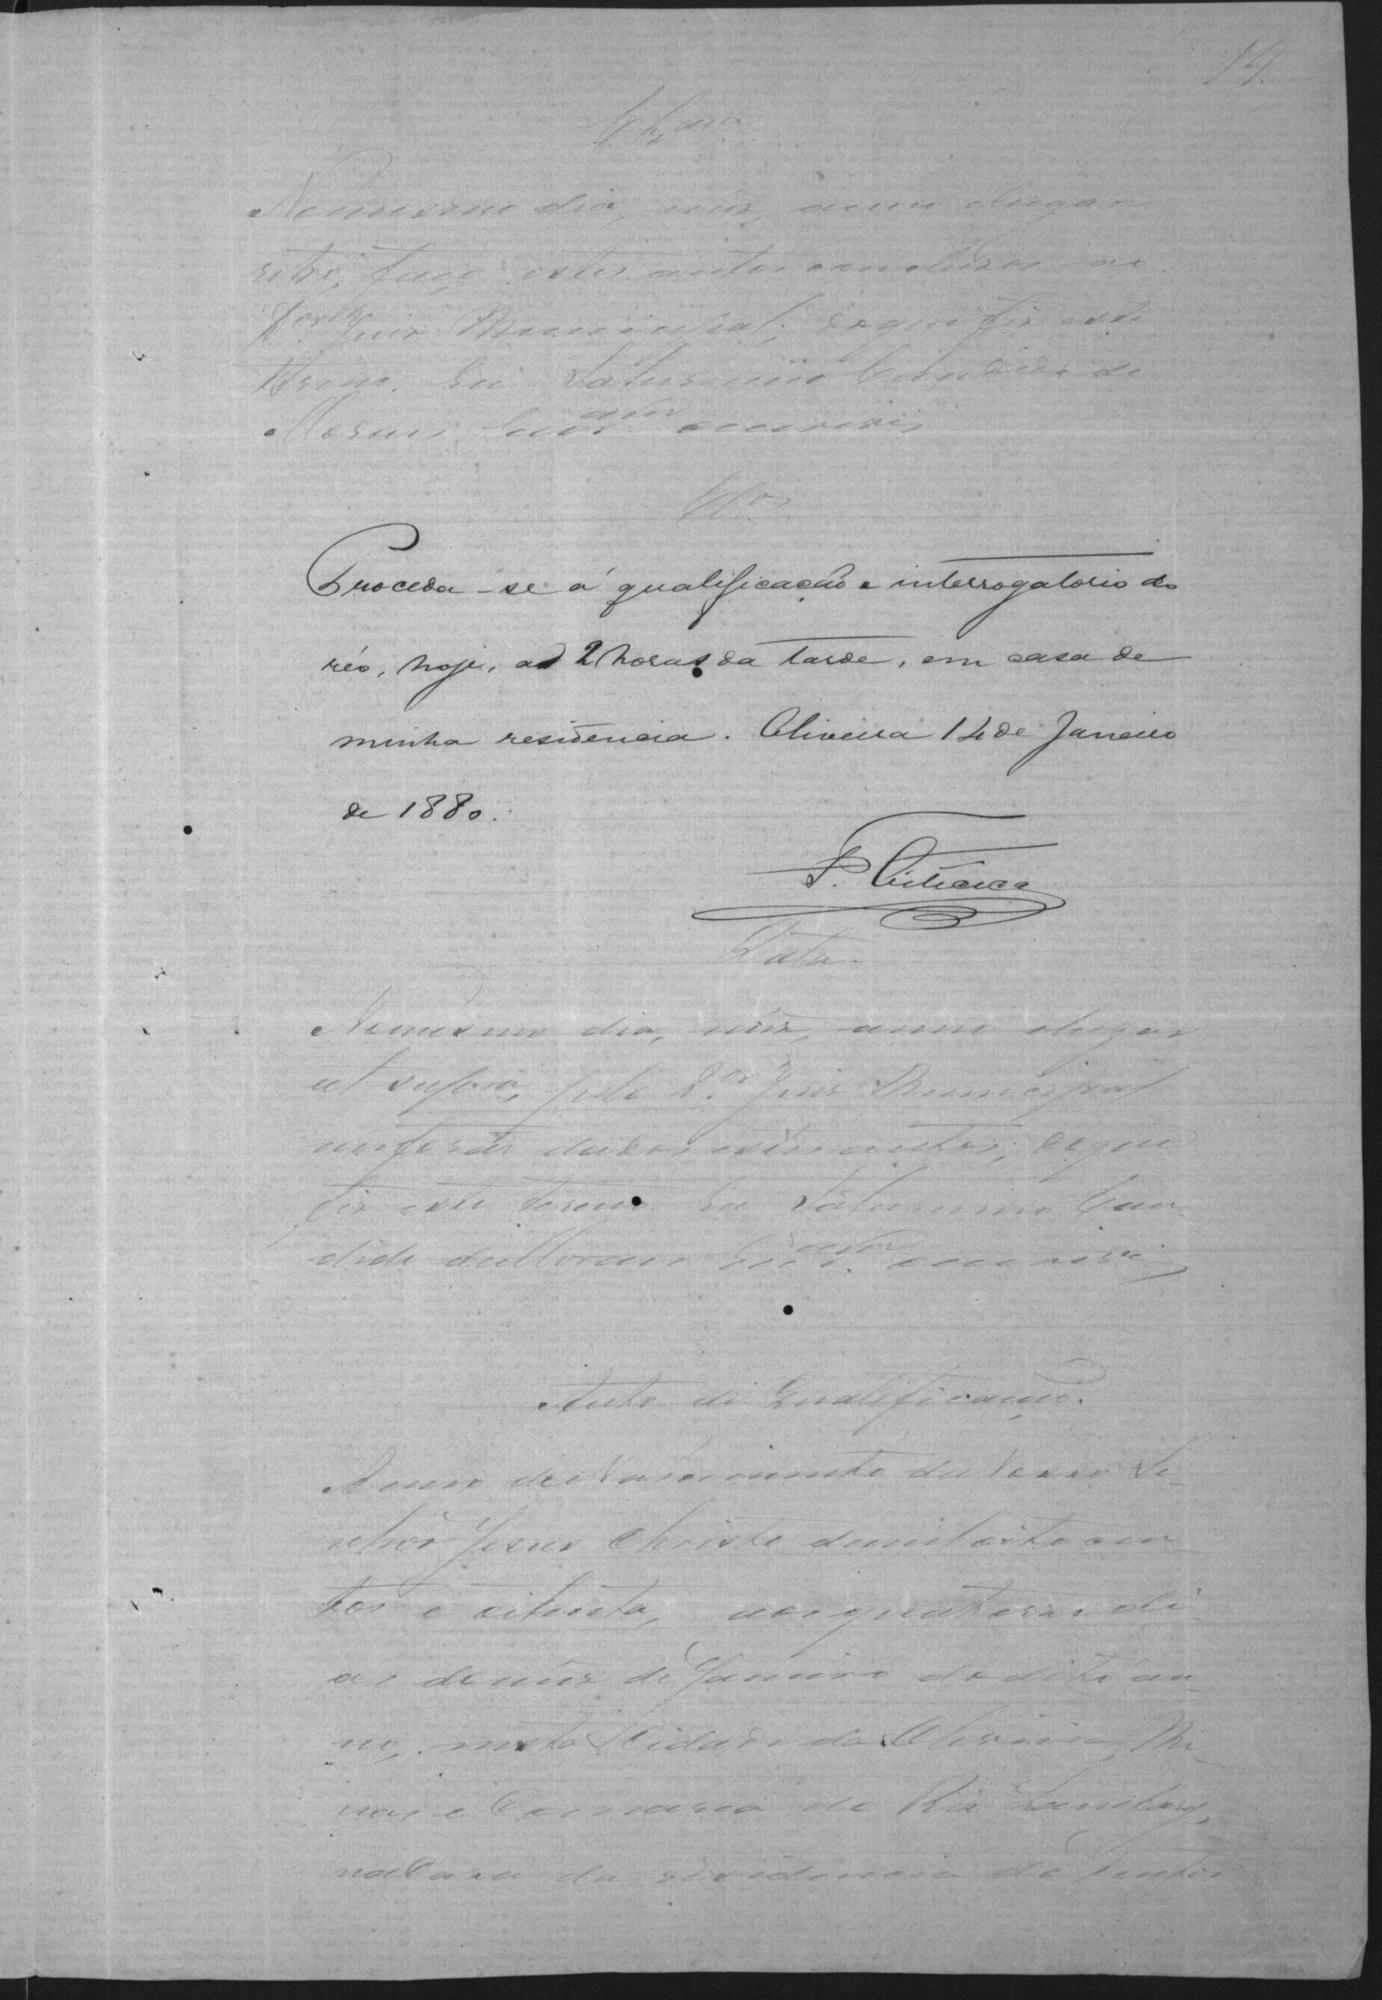 14
Clz.am
No mesmo dia, mês, anno e lugar
retro, faço estes autos conclusos ao
D.or Juiz Municipal; do que fiz este
termo. Eu Saturnino Candido de
Moraes, escrevi
Cl.os
Proceda-se á qualificação e interrogatorio do
réo, hoje, as 2 horas da tarde, em casa de
minha residencia. Oliveira 14 de Janeiro
de 1880.
F.
Data.
No mesmo dia, mês, anno e lugar
ut supra, pelo D.or Juiz Municipal
me forão dados estes autos; do que
fiz este termo. Eu Saturnino Can-
dido de Moraes escrevi
Auto de Qualificação.
Anno do Nascimento de Nosso Se-
nhor Jesus Christo de mil oito cen-
tos e oitenta, aos quatorze di-
as do mês de Janeiro do dito an-
no, nesta Cidade da Oliveira, Mi-
nas e Comarca do Rio Lambary,
na Casa da residencia do Doutor